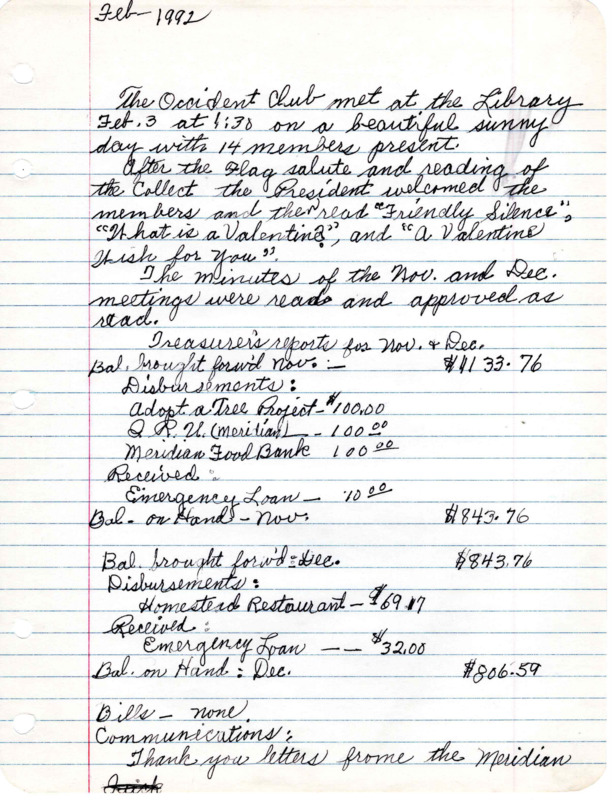 Feb - 1992
The Occident Club met at the Library
Feb. 3 at 1:30 on a beautiful sunny
day with 14 members present.
After the Flag salute and reading of
the Collect the President welcomed the
members and then read "Friendly Silence",
"What is a Valentine?", and "A Valentine
Wish for You".
The minutes of the Nov. and Dec.
meetings were read and approved as
read.
Treasurer's reports for Nov. & Dec.
Bal. brought forw'd Nov. - $1133.76
Disbursements:
Adopt a Tree Project - $100.00
Q.R.U. (Meridian) - 100 00
Meridian Food Bank 100 00
Received:
Emergency Loan - 10 00
Bal. on Hand - Nov. $843.76
Bal. brought forw'd: Dec. $843.76
Disbursements:
Homestead Restaurant - $69.17
Received:
Emergency Loan -- $32.00
Bal. on Hand: Dec. $806.59
Bills - none.
Communications:
Thank you letters frome the Meridian